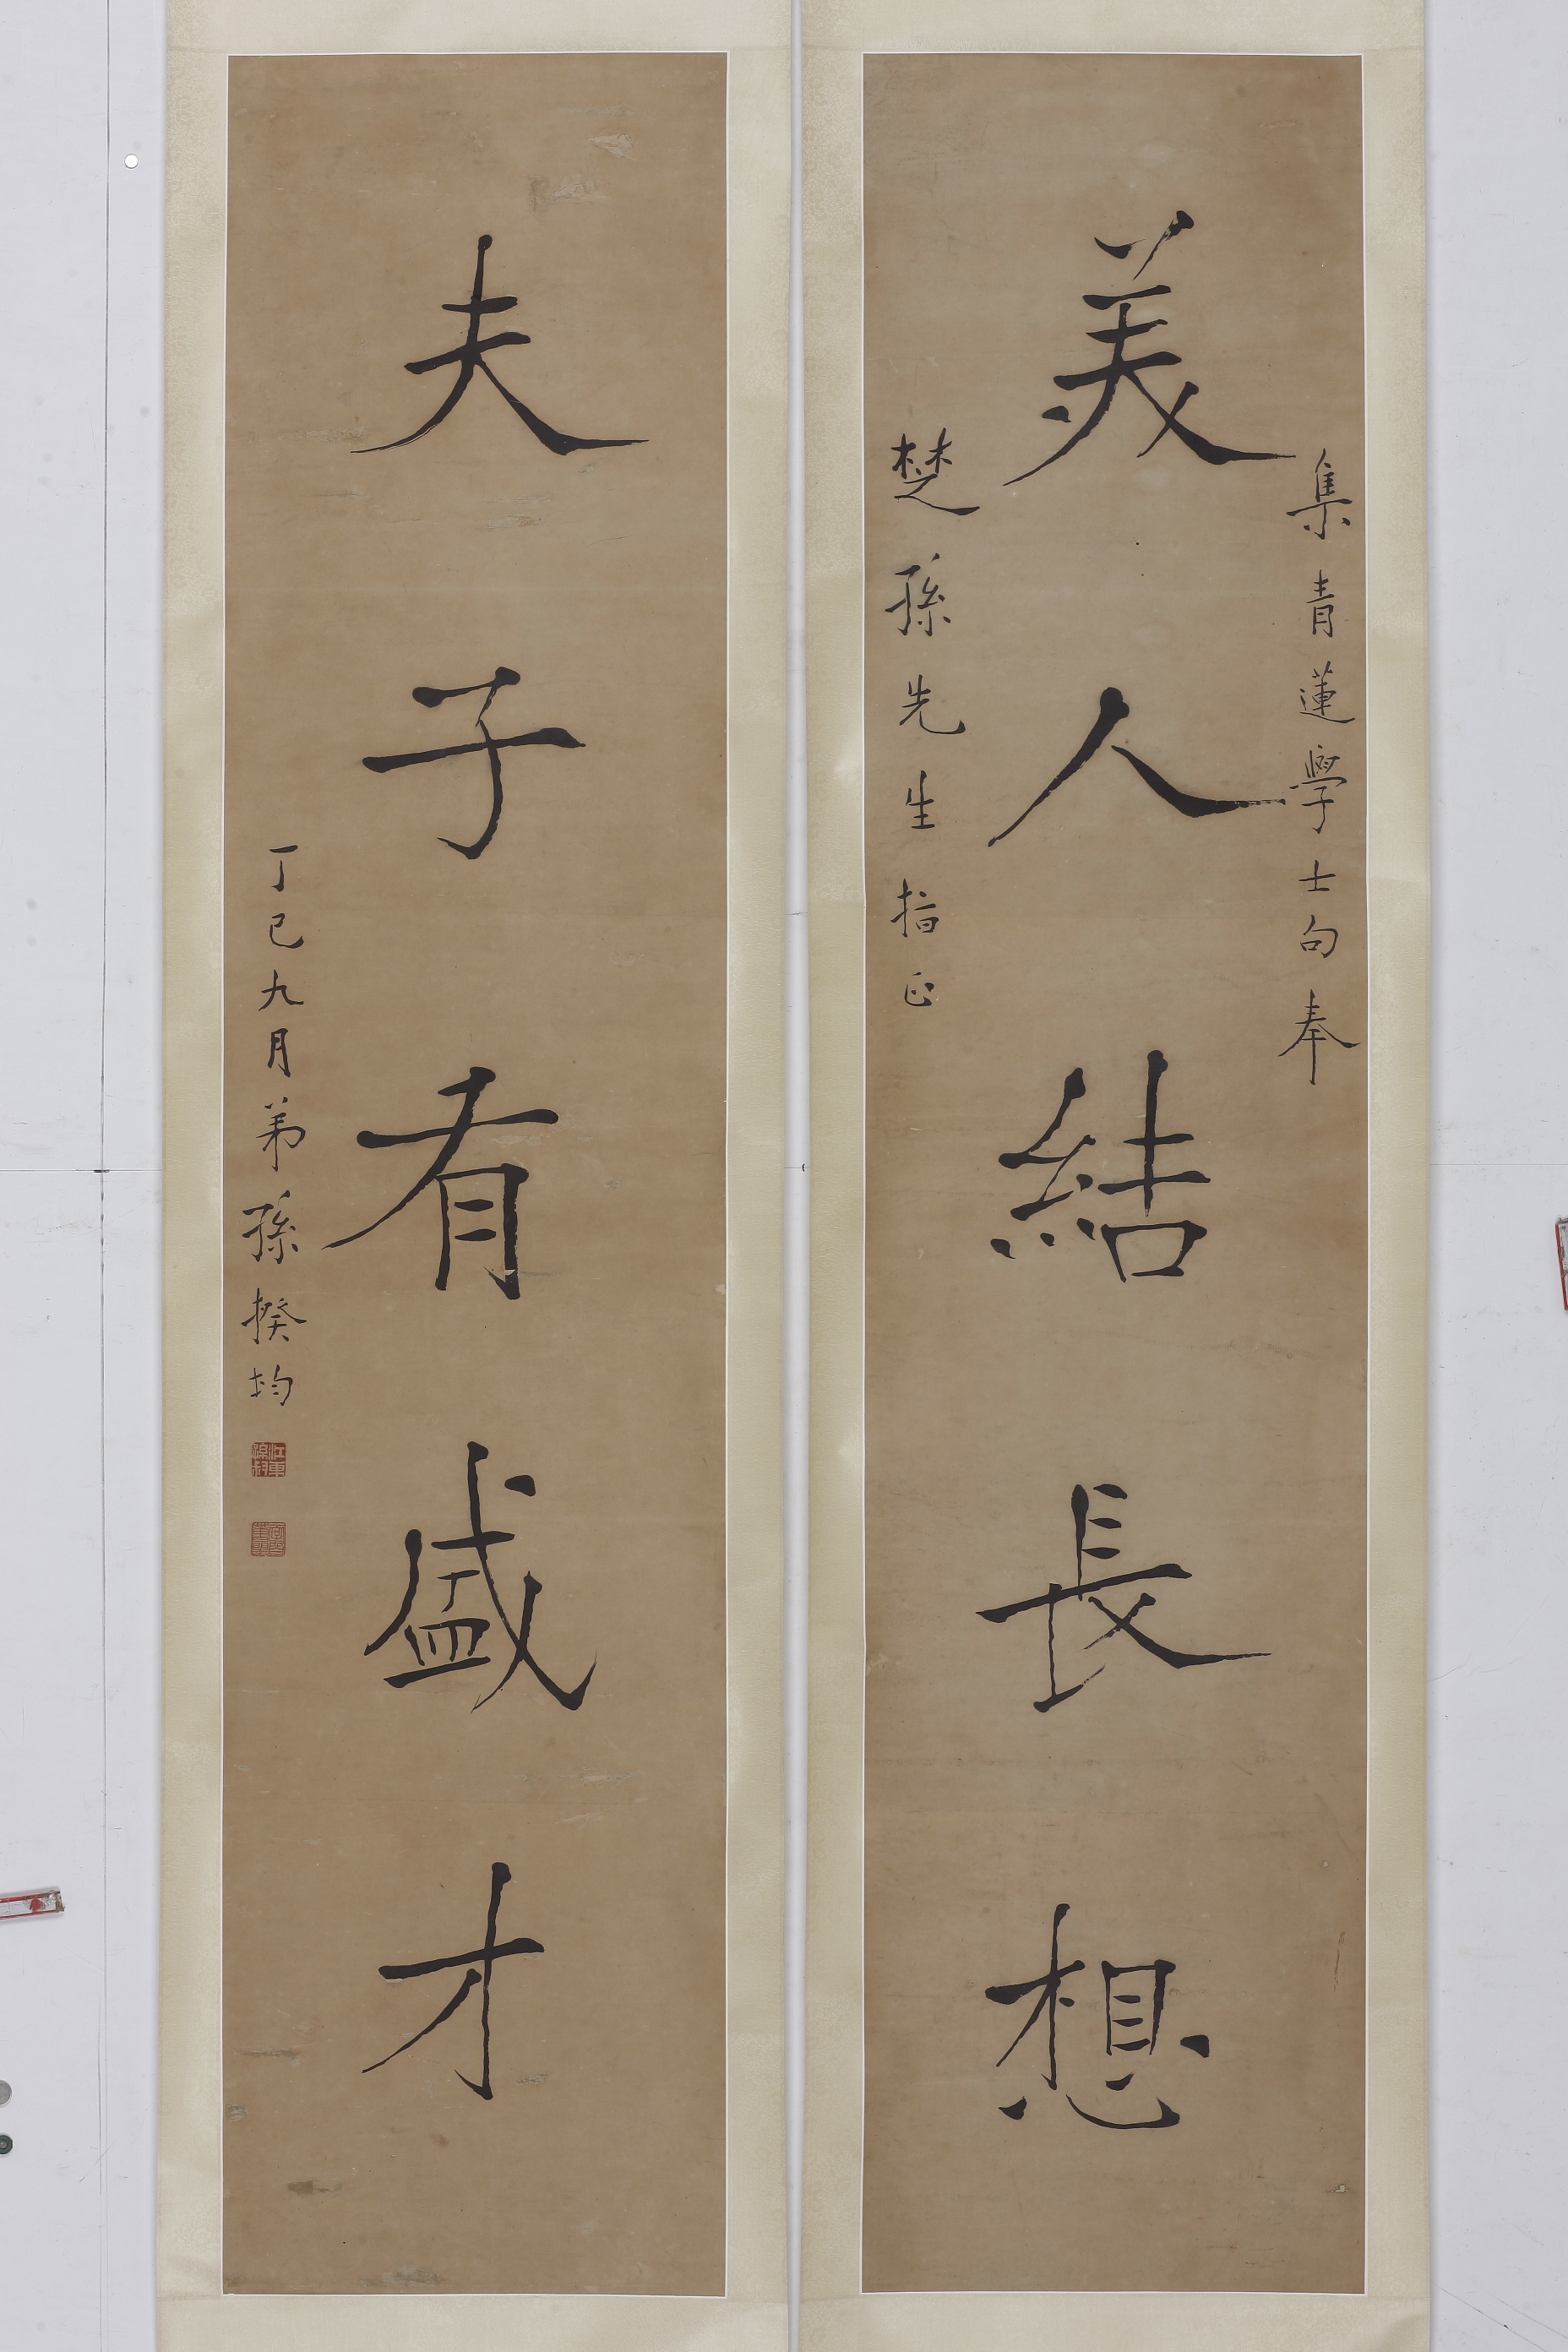 集青蓮學士句奉
美人結長想
楚孫先生指正
夫子有盛才
丁巳九月弟孫揆均